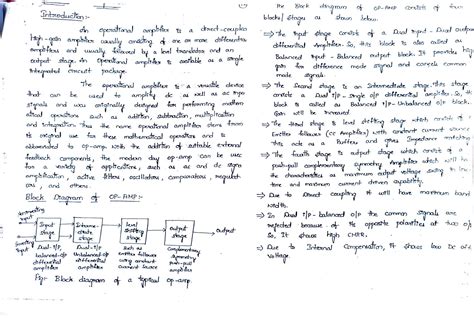 Introduction:-
An operational amplifier is a direct-coupled
high-gain amplifier usually consisting of one or more differential
amplifiers and usually followed by a level translator and an
output stage. An operational amplifier is available as a single
integrated circuit package.
The operational amplifier is a versatile device
that can be used to amplify dc as well as ac input
signals and was originally designed for performing mathem
atical operations such as addition, subtraction, multiplication
and integration. Thus the name operational amplifier stems from
its original use for these mathematical operations and is
abbreviated to op-amp. With the addition of suitable external
feedback components, the modern day op-amp can be used
for a variety of applications, such as ac and dc signal
amplification, active filters, oscillators, comparators, regulat
ors, and others.
Block Diagram of OP-AMP:-
Inverting
input
Input
stage
Interme-
diate
stage
level
shifting
stage
output
stage
output
Inverting
input
Dual-I/P,
balanced-O/P
differential
amplifier
Dual-I/P,
Unbalanced-O/P
differential
amplifier
Such as
emitter follower
using constant
current source
Complementary
Symmetry
push-pull
amplifier
Fig:- Block diagram of a typical op-amp.
The Block diagram of OP-AMP consists of
blocks/stages as shown below.
⇒ The input stage consists of a Dual Input - Dual output
differential Amplifier. So, this block is also called as
Balanced input - Balanced output block. It provides high
gain for difference mode signal and cancels common
mode signal.
⇒ The Second stage is an Intermediate stage. This stage
consists a Dual I/P - Single O/P differential amplifier. So, this
block is called as Balanced I/P - Unbalanced O/P block.
Gain will be increased.
⇒ The third stage is level shifting stage which consist of
Emitter follower (CC Amplifier) with constant current source
this acts as a Buffer and gives Impedance matching
⇒ The fourth stage is output stage which consist of a
push-pull complementary symmetry Amplifier which will have
the characteristics as maximum output voltage swing
tone and maximum current driven capability.
⇒ Due to Direct coupling it will have maximum band
width.
⇒ In Dual I/P - balanced O/P the common signals are
rejected because of its opposite polarities at two O/P
So, It shows high CMRR.
⇒ Due to Internal Compensation, it shows low DC
Voltage.